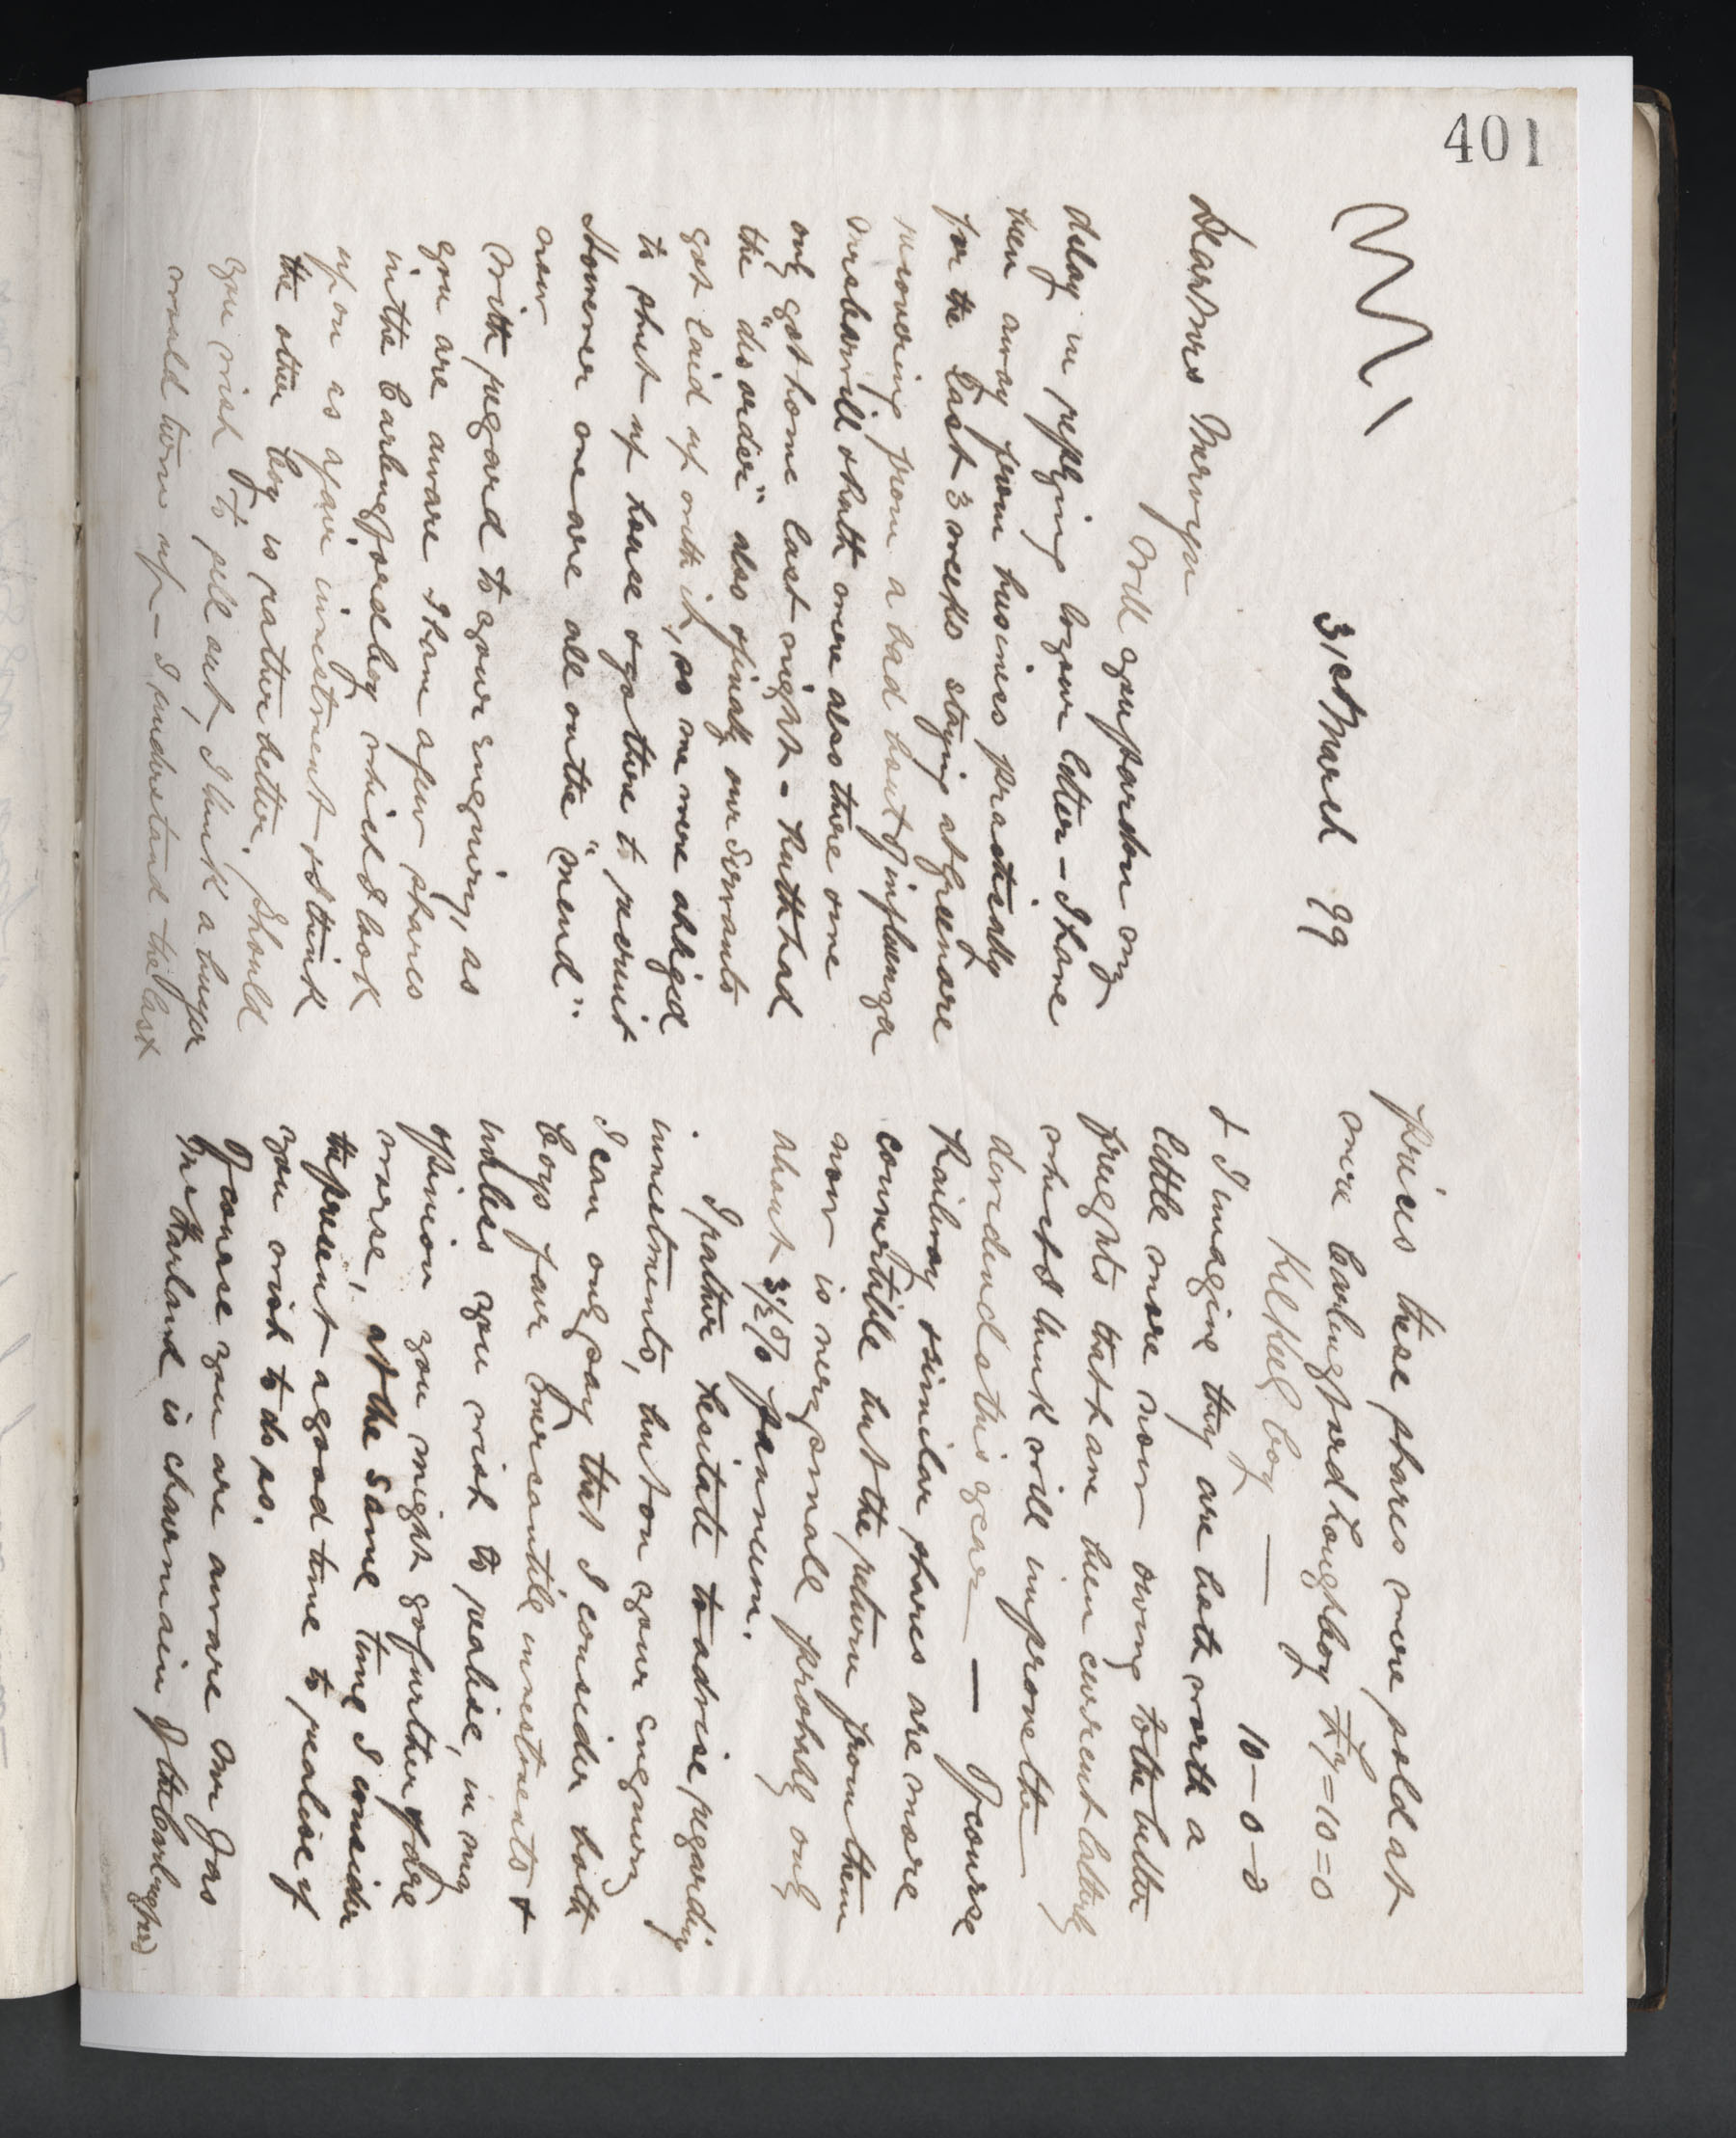 401
31st March 99
Dear Mrs Mervyn
Will you pardon my
delay in replying to your letter - I have
been away from business practically
for the last 3 weeks staying at Greenore
recovering from a bad bout of influenza
Miss & Ruth were also there one
only got home last night - Ruth had
the "disorder" also & finally our servants
got laid up with it, so we were obliged
to shut up house & go there to recruit
However we are all on the "mend"
now
With regard to your enquiry, as
you are aware I have a few shares
in the Carlingford Loy which I look
upon as a fair investment & I think
the other Loy is rather better. Should
you wish to sell out, I think a buyer
would turn up - I understand the last
prices these shares were sold at
were Carlingford Lough Loy £9=10=0
Kilkeel Loy — 10-0-0
& I imagine they are both worth a
little more now owing to the better
freights that have been current lately
which I think will improve the
dividends this year — Of course
Railway & similar shares are more
convertible but the return from them
now is very small probably only
about 3½% per annum.
I rather hesitate to advise regarding
investments, but on your enquiry
I can only say that I consider both
Coys fair mercantile investments &
unless you wish to realise, in my
opinion you might go further & fare
worse, at the same time I consider
the present a good time to realise if
you wish to do so.
Of course you are aware Mr Jas
McFarland is chairman of the Carlingford